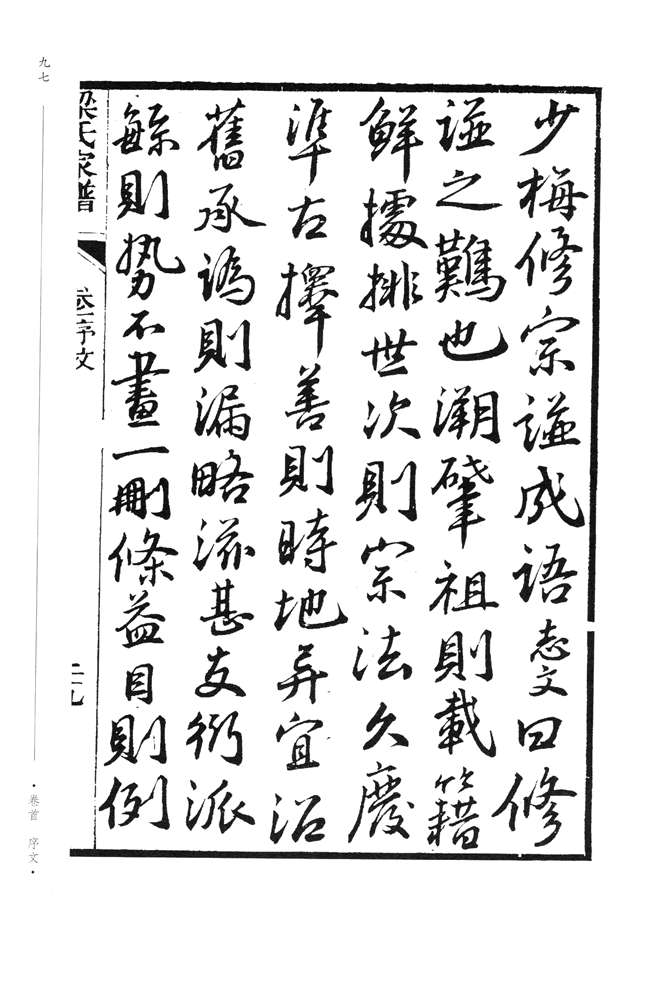 少梅修宗譜成語志文曰修
譜之難也溯肇祖則載籍
鮮據排世次則宗法久廢
準古擇善則時地异宜沿
舊承譌則漏略滋甚支衍派
繇則勢不畫一刪條益目則例
梁氏家譜
卷一序文
二九
九七
·卷首 序文·